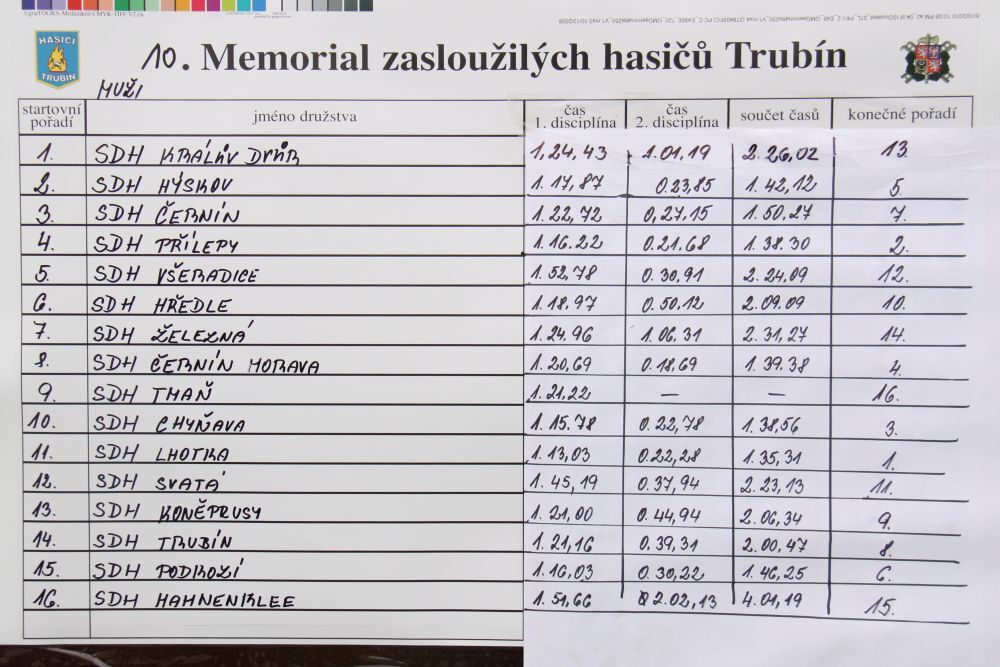 HASIČI
TRUBÍN
10. Memorial zasloužilých hasičů Trubín
MUŽI
startovní pořadí jméno družstva čas 1. disciplína čas 2. disciplína součet časů konečné pořadí
1. SDH KRÁLŮV DVŮR 1,24,43 1.01,19 2.26,02 13.
2. SDH HÝSKOV 1.17,87 0.23,85 1.42,12 5.
3. SDH ČERNÍN 1.22,72 0,27.15 1.50.27 7.
4. SDH PŘÍLEPY 1.16.22 0.21.68 1.38.30 2.
5. SDH VŠERADICE 1.52,78 0.30,91 2.24,09 12.
6. SDH HŘEDLE 1.18.97 0.50.12 2.09.09 10.
7. SDH ŽELEZNÁ 1.24.96 1.06.31 2.31,27 14.
8. SDH ČERNÍN MORAVA 1.20,69 0.18,69 1.39.38 4.
9. SDH TMAŇ 1.21,22 — — 16.
10. SDH CHYŇAVA 1.15.78 0.22,78 1.38,56 3.
11. SDH LHOTKA 1.13,03 0.22,28 1.35,31 1.
12. SDH SVATÁ 1.45,19 0.37,94 2.23,13 11.
13. SDH KONĚPRUSY 1.21,00 0.44,94 2.06,34 9.
14. SDH TRUBÍN 1.21,16 0.39,31 2.00,47 8.
15. SDH PODKOZÍ 1.16,03 0.30,22 1.46,25 6.
16. SDH HAHNENKLEE 1.51,66 2.02,13 4.01,19 15.